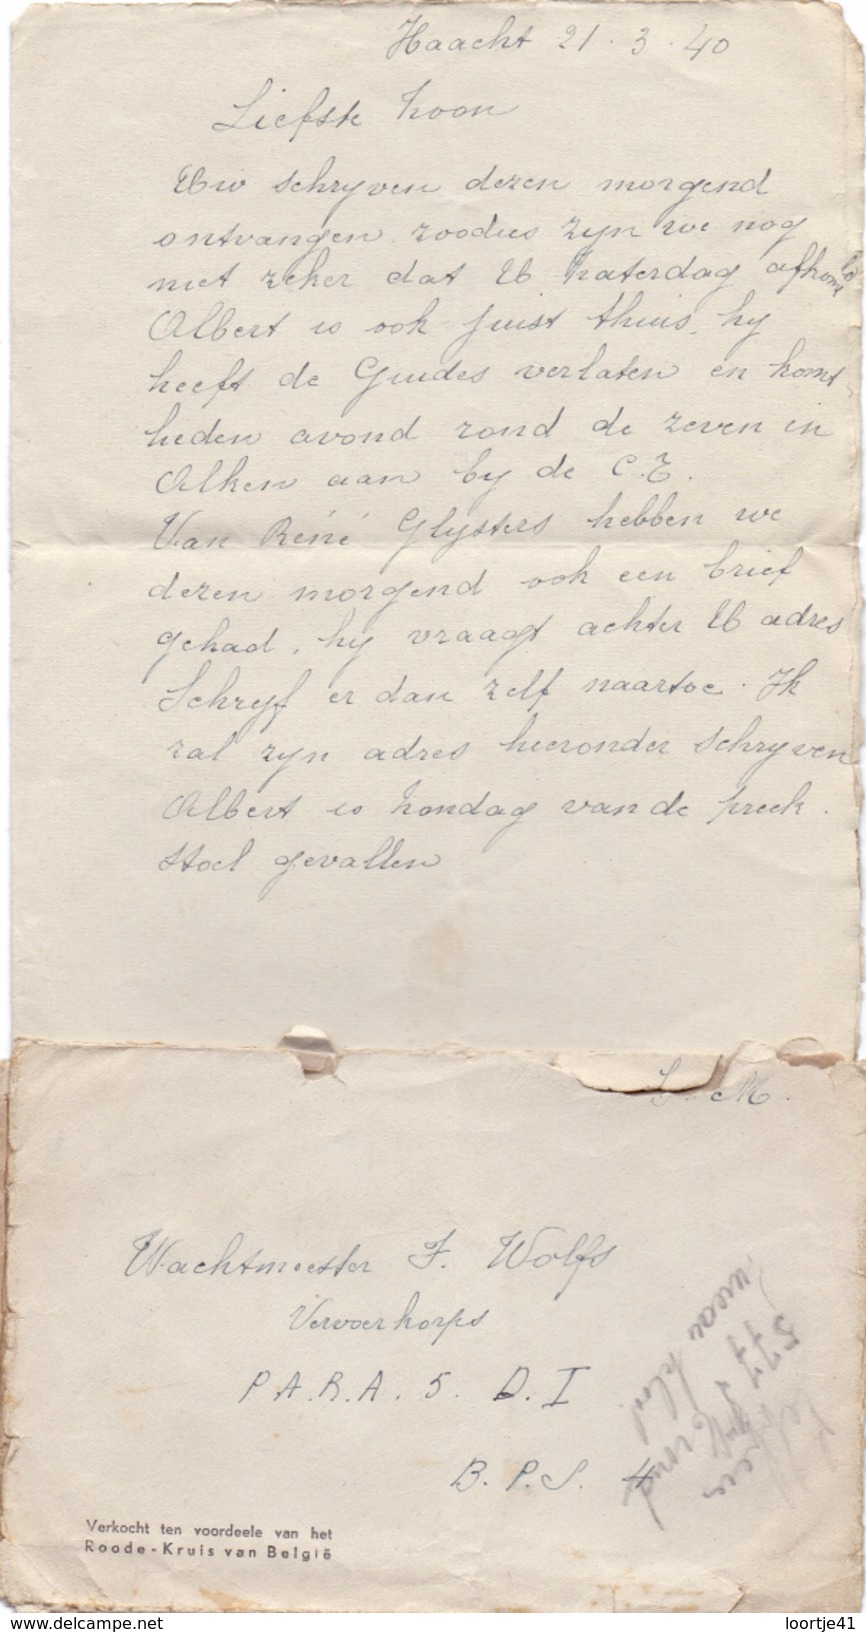 Haacht 21.3.40
Liefste Zoon
Uw schryven dezen morgend
ontvangen. zoodus zyn we nog
niet zeker dat U Zaterdag afkomt
Albert is ook juist thuis, hy
heeft de Guides verlaten en komt
heden avond rond de zeven in
Alken aan by de C.T.
Van Réné Glysters hebben we
dezen morgend ook een brief
gehad, hy vraagt achter U adres
Schryf er dan zelf naartoe. Ik
zal zyn adres hieronder schryven
Albert is Zondag van de preek.
stoel gevallen
M.
Wachtmeester F. Wolfs
Vervoerkorps
P.A.R.A. 5. D.I
B.P.S. 4
577
Verkocht ten voordeele van het
Roode-Kruis van België
loortje41